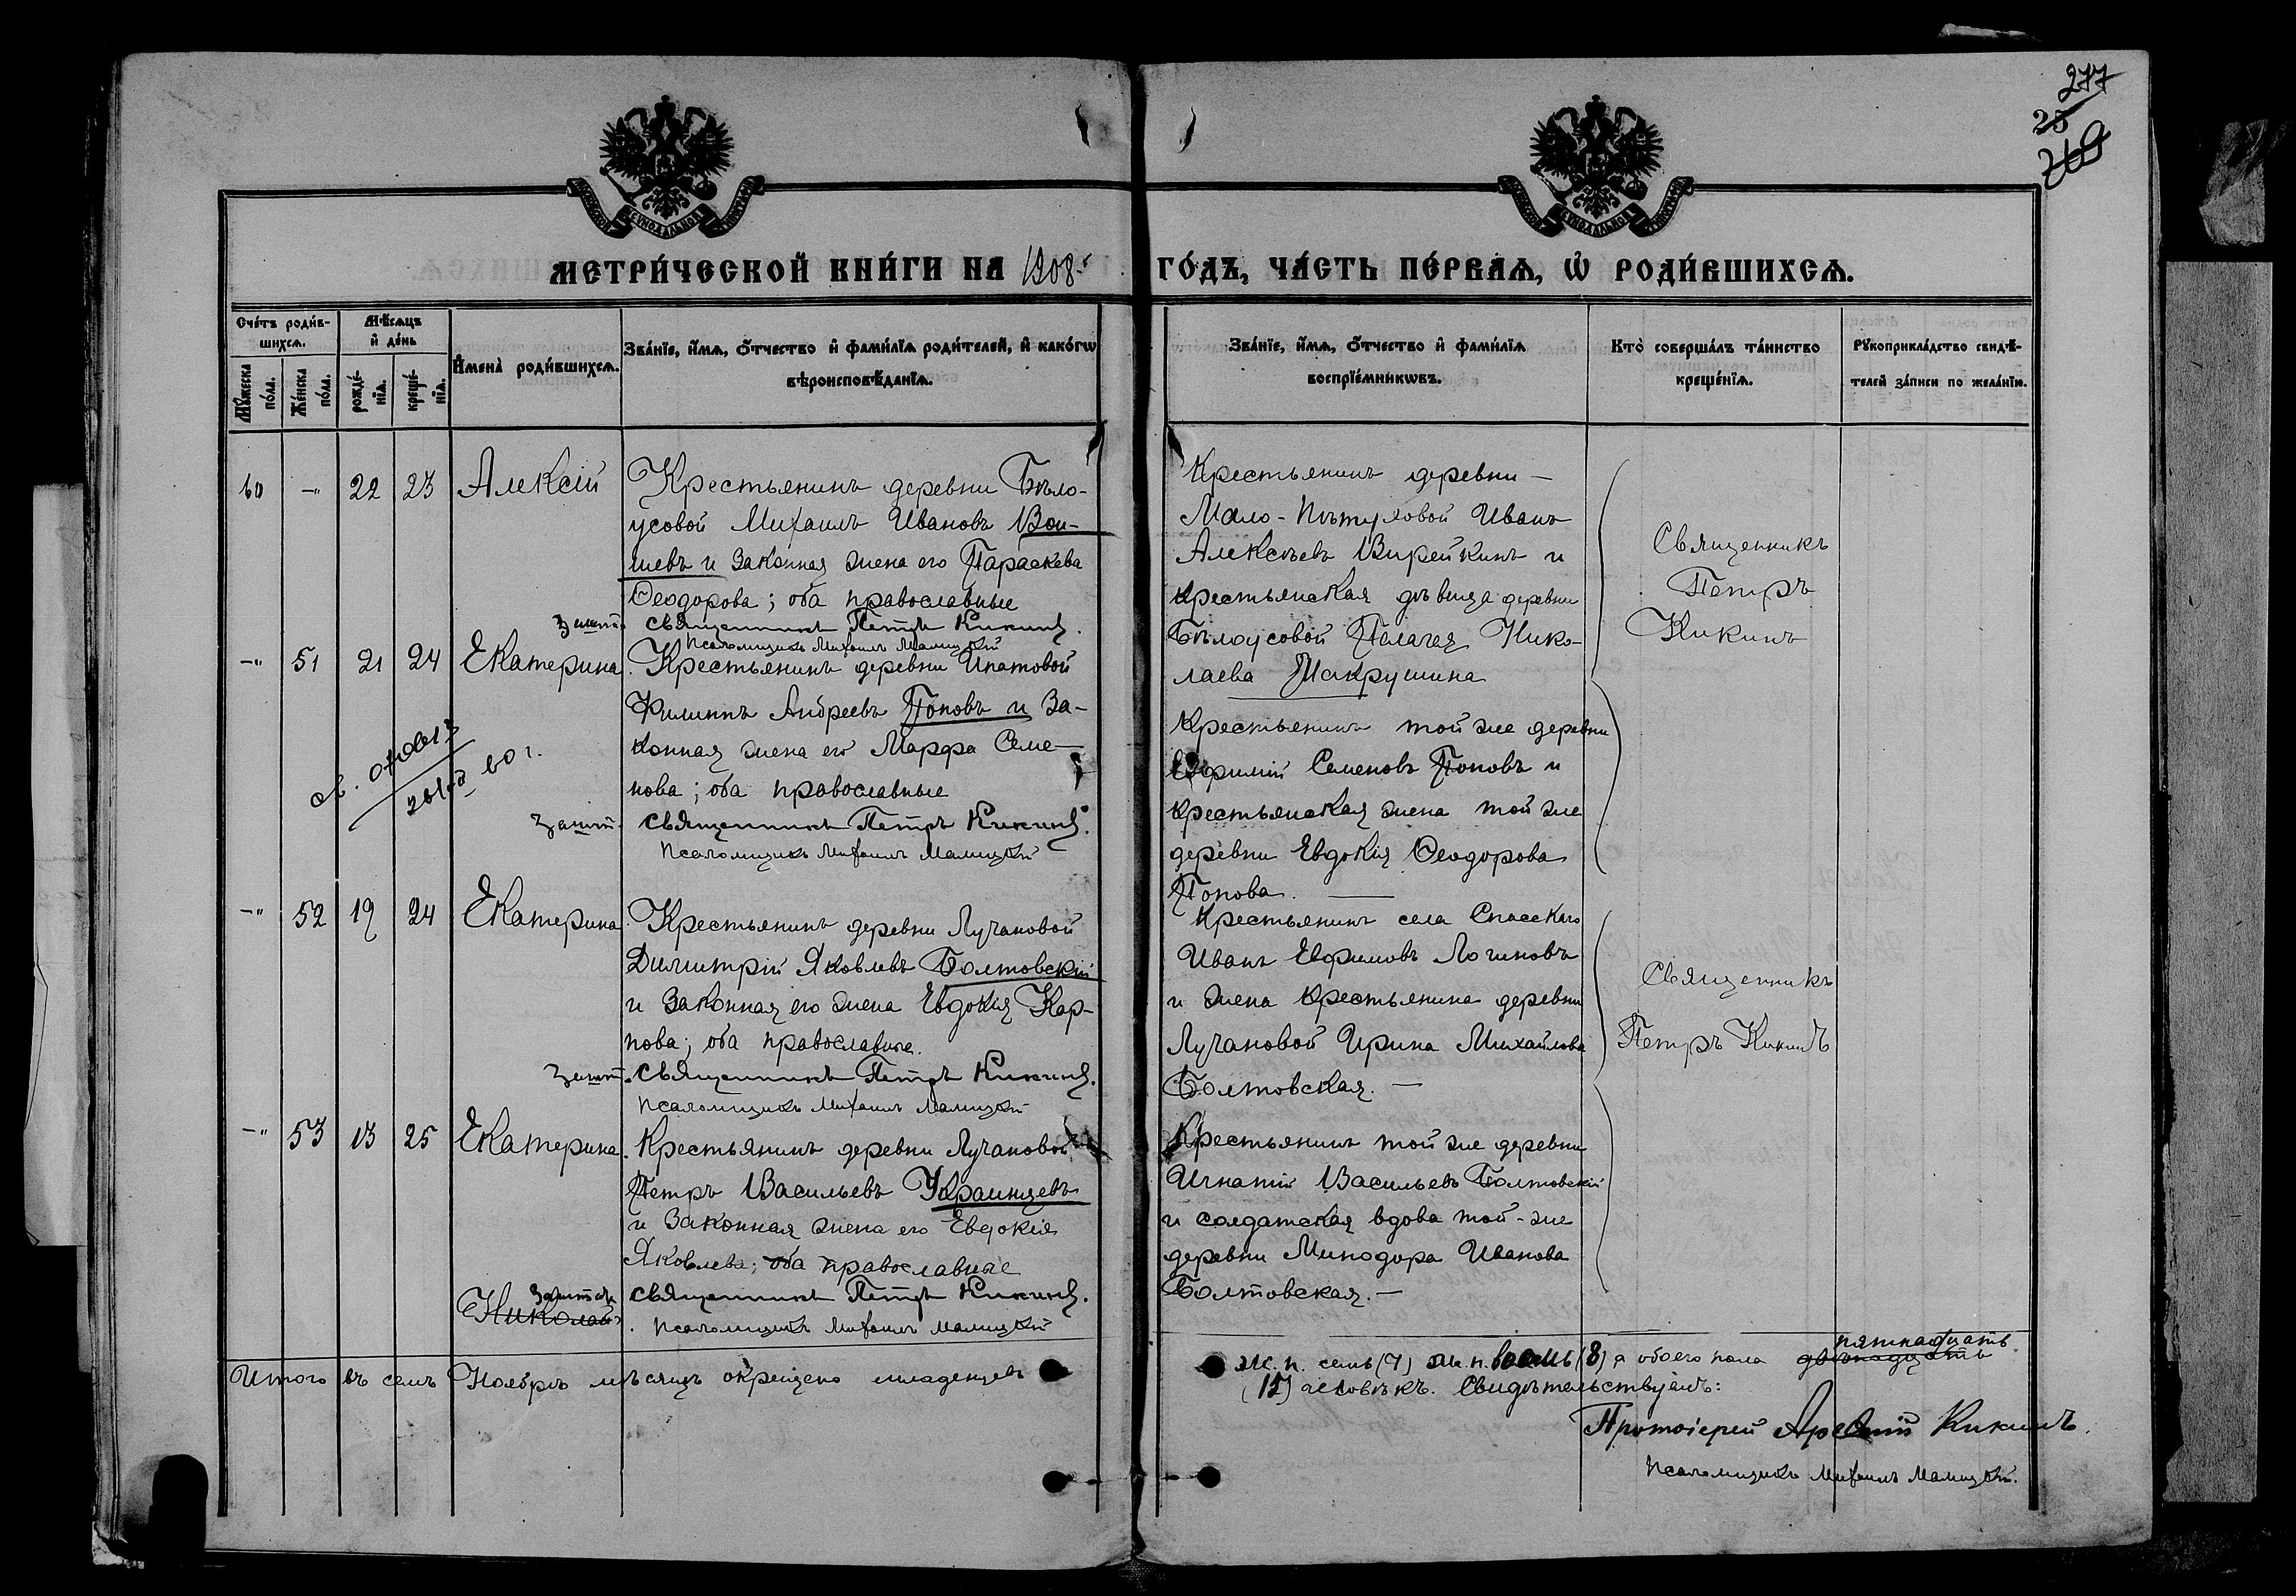 277
25
МЕТРИ́ЧЕСКОЙ КНИ́ГИ НА 1908 ГО́ДЪ, ЧА́СТЬ ПЕ́РВАѦ, Ѡ РОДИ́ВШИХСѦ.
Сче́тъ роди́в-
шихсѧ.
Мѣ́сѧцъ
и҆ де́нь
Мꙋ́жеска
по́ла.
Же́нска
по́ла.
рожде́-
нїѧ.
креще́-
нїѧ.
И҆мена̀ роди́вшихсѧ.
Зва́нїе, и҆́мѧ, ѻ҆́тчество и҆ фами́лїѧ роди́телей, и҆ како́гѡ
вѣроисповѣ́данїѧ.
Зва́нїе, и҆́мѧ, ѻ҆́тчество и҆ фами́лїѧ
воспрїе́мникѡвъ.
Кто̀ соверша́лъ та́инство
креще́нїѧ.
Рꙋкоприкла́дство свидѣ́-
телей за́писи по жела́нїю.
60 -"- 22 23 Алексій
Крестьянинъ деревни Бѣло-
усовой Михаилъ Ивановъ Вои-
шевъ и законная жена его Параскева
Ѳеодорова; оба православные
священникъ Петръ Кикинъ.
Псаломщикъ Михаилъ Малицкій
Крестьянинъ деревни –
Мало-Пѣтуховой Иванъ
Алексѣевъ Вирейкинъ и
крестьянская дѣвица деревни
Бѣлоусовой Пелагея Нико-
лаева Макрушина
Священникъ
Петръ
Кикинъ
-"- 51 21 24 Екатерина
Крестьянинъ деревни Ипатовой
Филиппъ Андреевъ Поповъ и за-
конная жена его Марфа Семе-
нова; оба православные
священникъ Петръ Кикинъ.
Псаломщикъ Михаилъ Малицкій
60 г.
Крестьянинъ той же деревни
Евфимій Семеновъ Поповъ и
крестьянская жена той же
деревни Евдокія Ѳеодорова
Попова.
-"- 52 19 24 Екатерина
Крестьянинъ деревни Лучановой
Димитрій Яковлевъ Болтовскій
и законная его жена Евдокія Кар-
пова; оба православные.
священникъ Петръ Кикинъ.
Псаломщикъ Михаилъ Малицкій
Крестьянинъ села Спасскаго
Иванъ Евфимовъ Логиновъ
и жена крестьянина деревни
Лучановой Ирина Михайлова
Болтовская. –
Священникъ
Петръ Кикинъ
-"- 53 13 25 Екатерина.
Крестьянинъ деревни Лучановой
Петръ Васильевъ Украинцевъ
и законная жена его Евдокія
Яковлева; оба православные
священникъ Петръ Кикинъ.
Псаломщикъ Михаилъ Малицкій
Николай
Крестьянинъ той же деревни
Игнатій Васильевъ Болтовскій
и солдатская вдова той-же
деревни Минодора Иванова
Болтовская. –
Итого въ семъ Ноябрѣ мѣсяцѣ окрещено младенцевъ
м. п. семь (7) ж. п. восемь (8) а обоего пола двѣнадцать пятнадцать
(15) человѣкъ. Свидѣтельствуемъ:
Протоіерей Арсеній Кикинъ.
Псаломщикъ Михаилъ Малицкій.